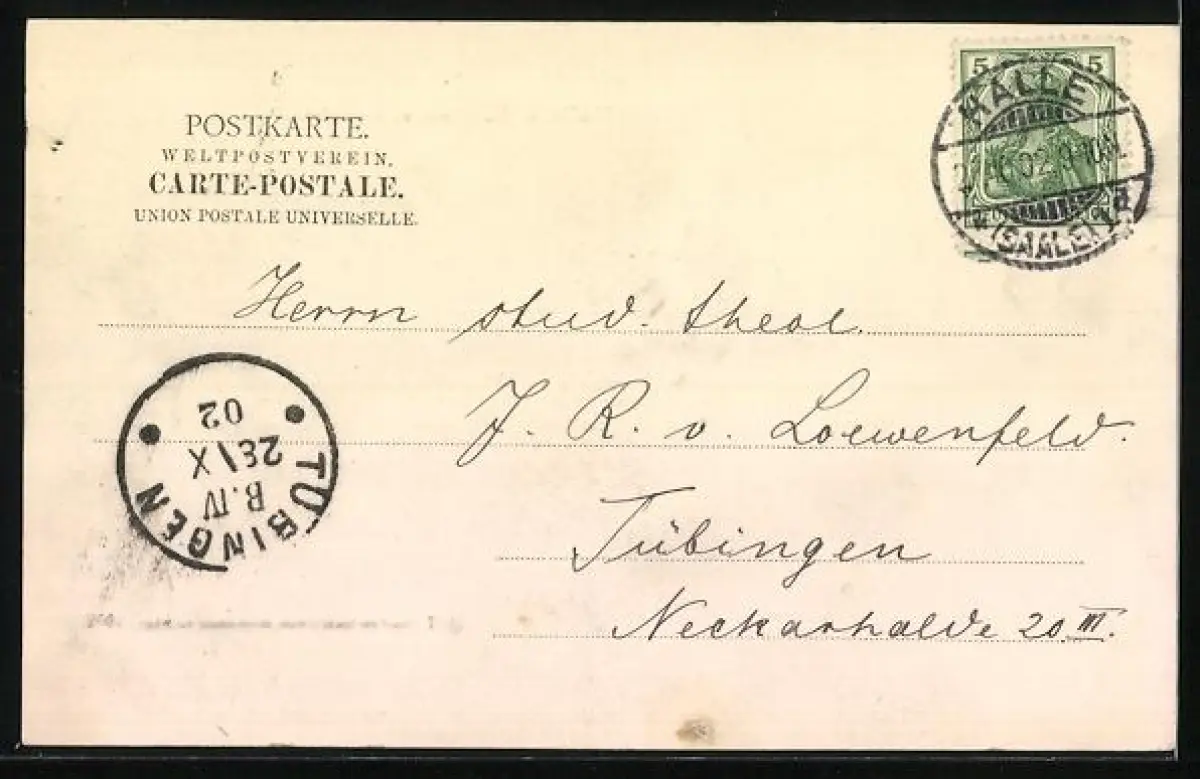 POSTKARTE.
WELTPOSTVEREIN.
CARTE-POSTALE.
UNION POSTALE UNIVERSELLE.
5 5
HALLE
02 9-10N.
(SAALE)
Herrn stud. theol.
J. R. v. Loewenfeld.
Tübingen
Neckarhalde 20 III.
TÜBINGEN
B.IV
28 IX
02